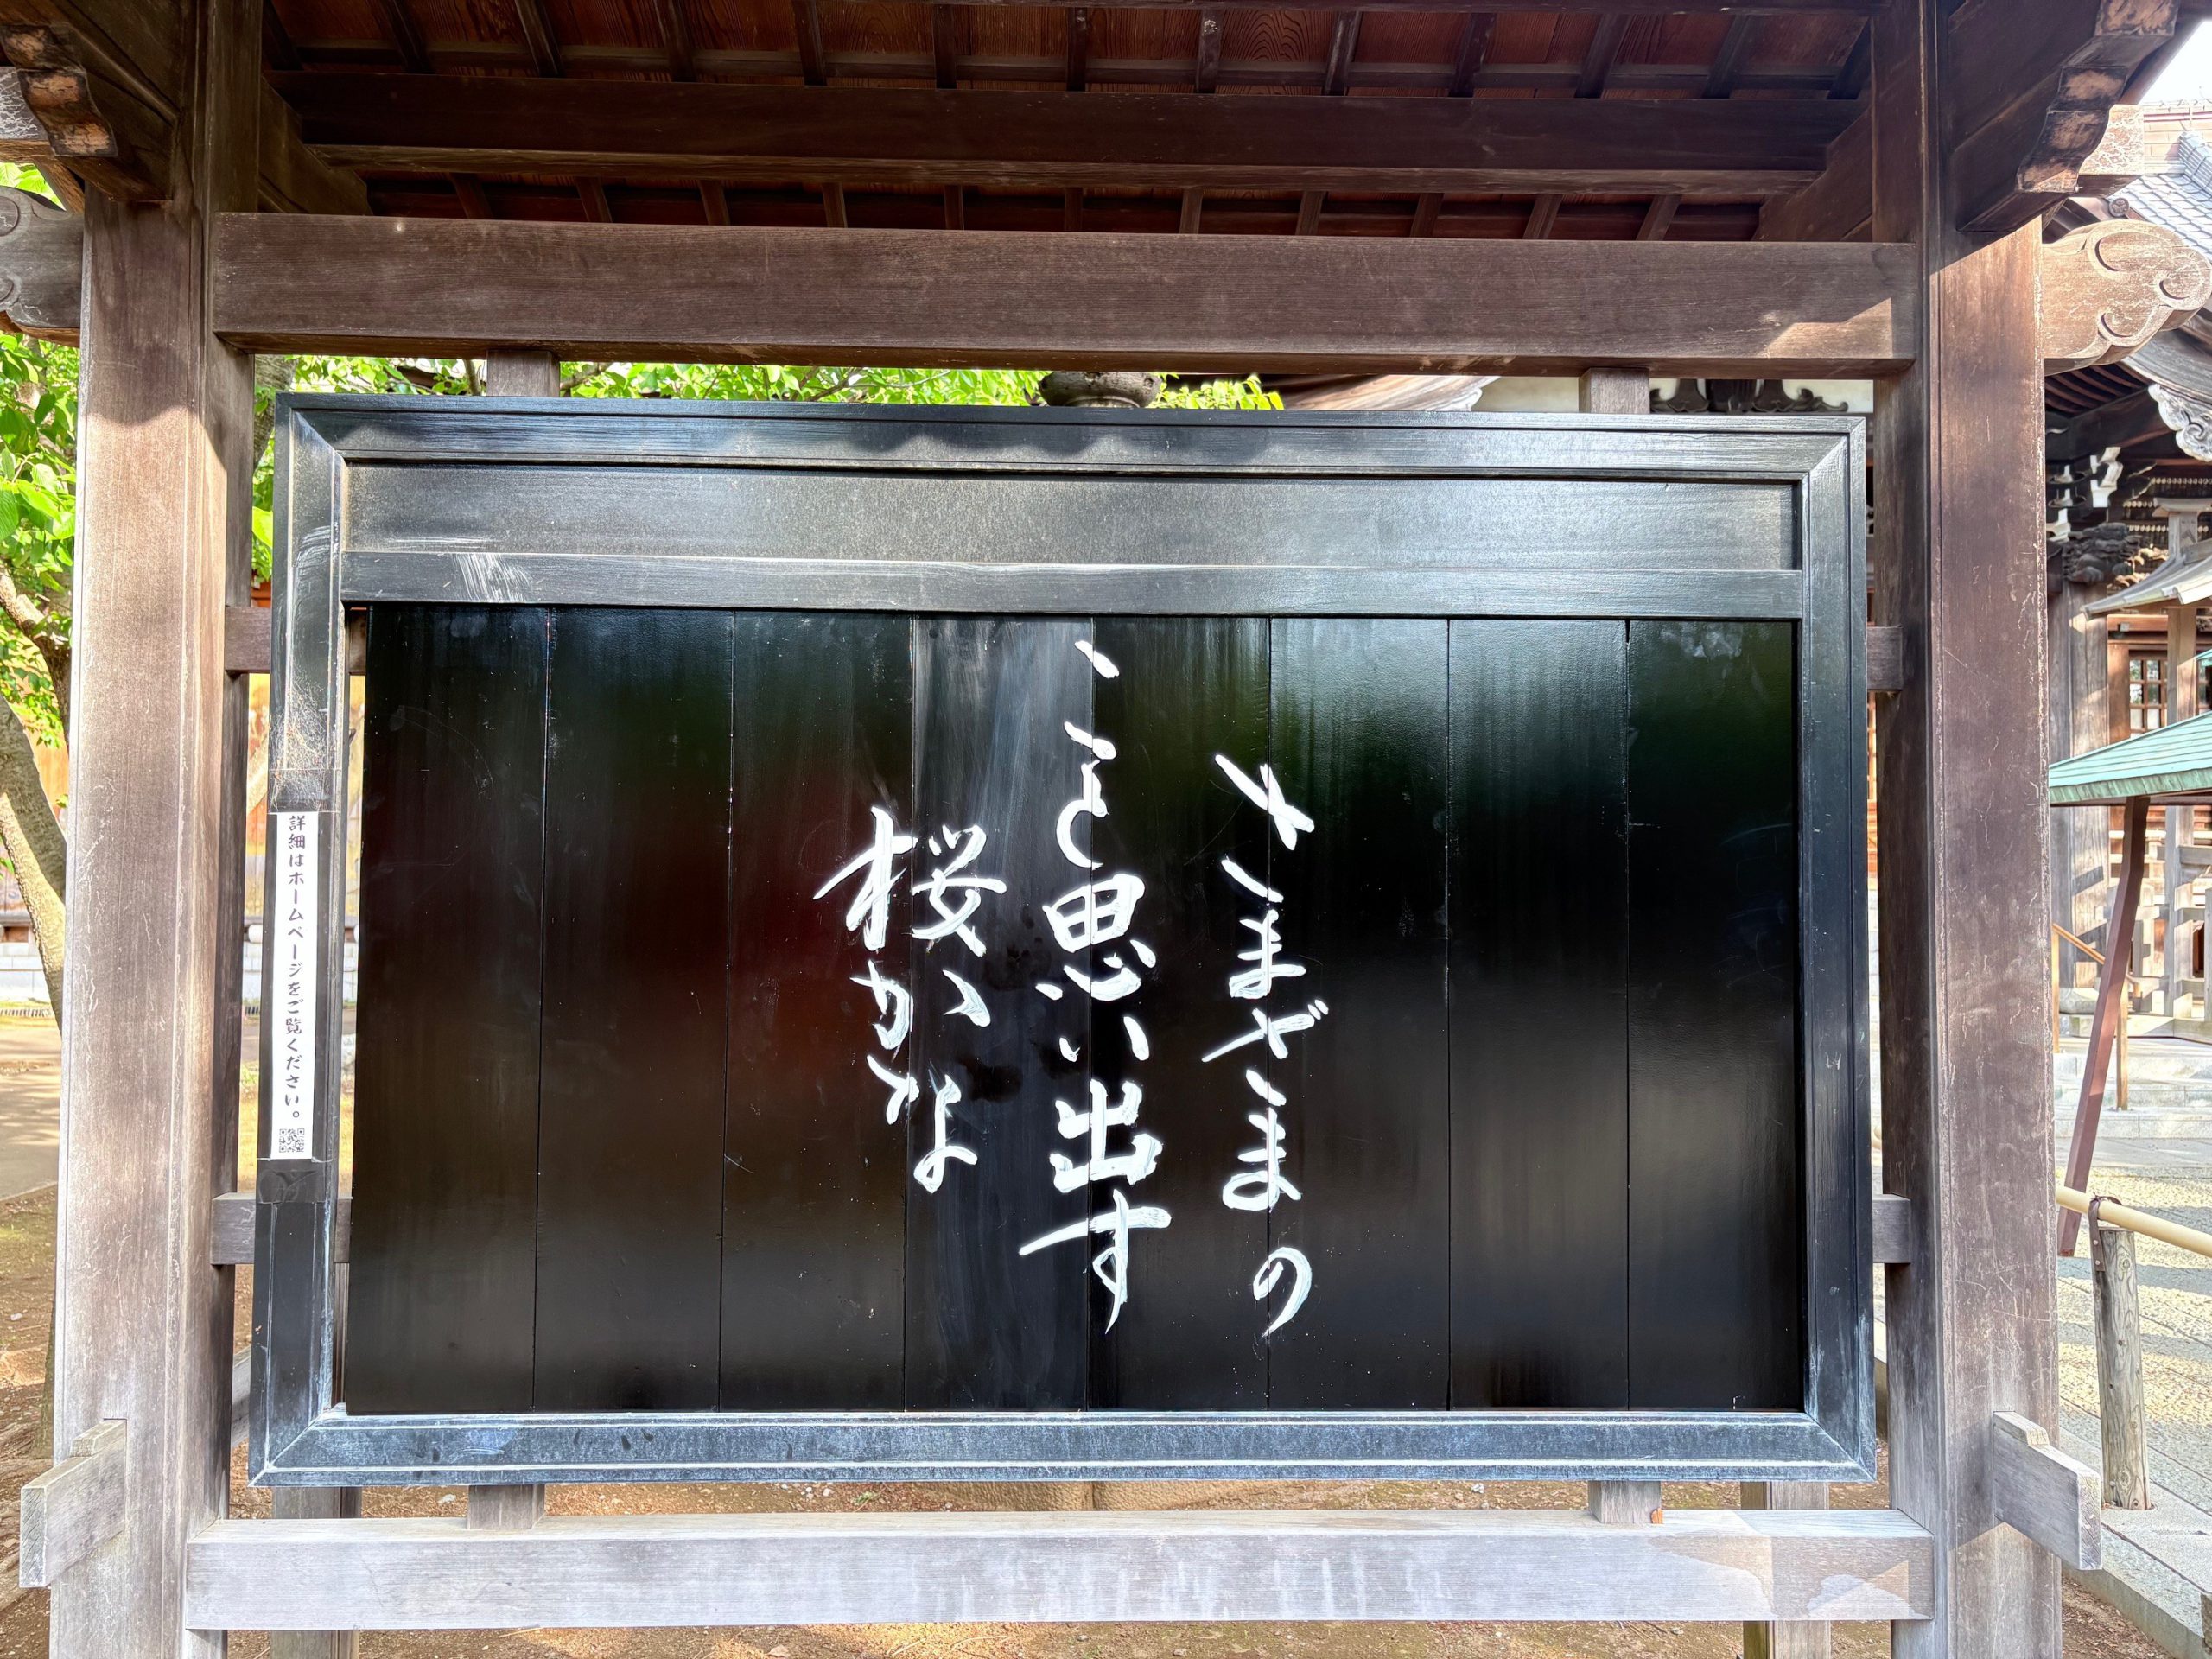 さまざまの
こと思い出す
桜かなよ
詳細はホームページをご覧ください。